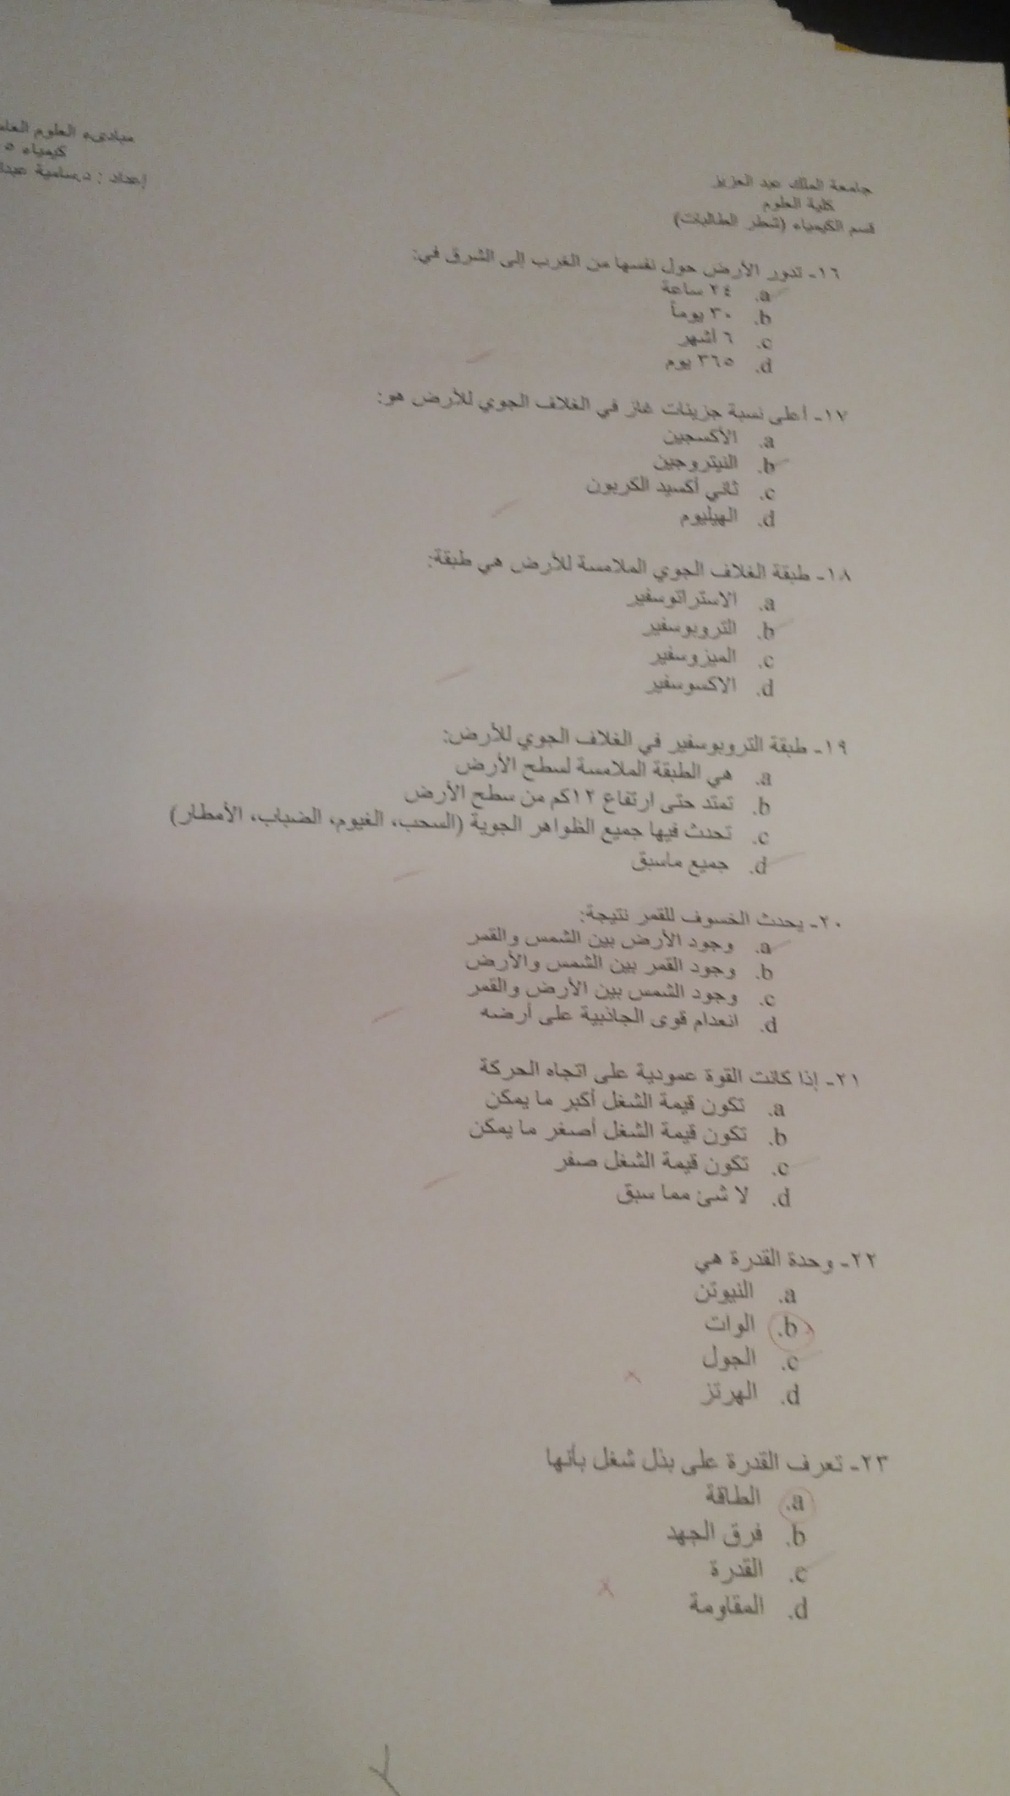 جامعة الملك عبد العزيز
كلية العلوم
قسم الكيمياء (شطر الطالبات)
مبادىء العلوم العامة
كيمياء ٥
إعداد : د.سامية
١٦- تدور الأرض حول نفسها من الغرب إلى الشرق في:
a. ٢٤ ساعة
b. ٣٠ يوماً
c. ٦ أشهر
d. ٣٦٥ يوم
١٧- أعلى نسبة جزيئات غاز في الغلاف الجوي للأرض هو:
a. الأكسجين
b. النيتروجين
c. ثاني أكسيد الكربون
d. الهيليوم
١٨- طبقة الغلاف الجوي الملامسة للأرض هي طبقة:
a. الاستراتوسفير
b. التروبوسفير
c. الميزوسفير
d. الاكسوسفير
١٩- طبقة التروبوسفير في الغلاف الجوي للأرض:
a. هي الطبقة الملامسة لسطح الأرض
b. تمتد حتى ارتفاع ١٢كم من سطح الأرض
c. تحدث فيها جميع الظواهر الجوية (السحب، الغيوم، الضباب، الأمطار)
d. جميع ماسبق
٢٠- يحدث الخسوف للقمر نتيجة:
a. وجود الأرض بين الشمس والقمر
b. وجود القمر بين الشمس والأرض
c. وجود الشمس بين الأرض والقمر
d. انعدام قوى الجاذبية على أرضه
٢١- إذا كانت القوة عمودية على اتجاه الحركة
a. تكون قيمة الشغل أكبر ما يمكن
b. تكون قيمة الشغل أصغر ما يمكن
c. تكون قيمة الشغل صفر
d. لا شئ مما سبق
٢٢- وحدة القدرة هي
a. النيوتن
b. الوات
c. الجول
d. الهرتز
٢٣- تعرف القدرة على بذل شغل بأنها
a. الطاقة
b. فرق الجهد
c. القدرة
d. المقاومة